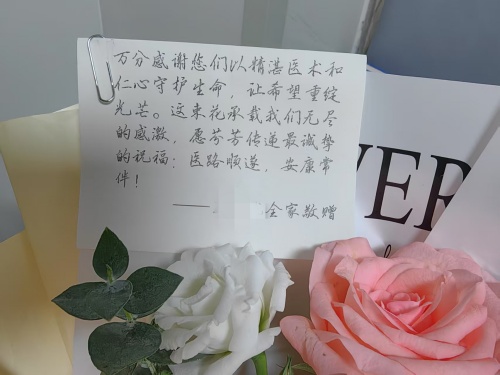 万分感谢您们以精湛医术和
仁心守护生命，让希望重绽
光芒。这束花承载我们无尽
的感激，愿芬芳传递最诚挚
的祝福：医路顺遂，安康常
伴！
——全家敬赠
VER